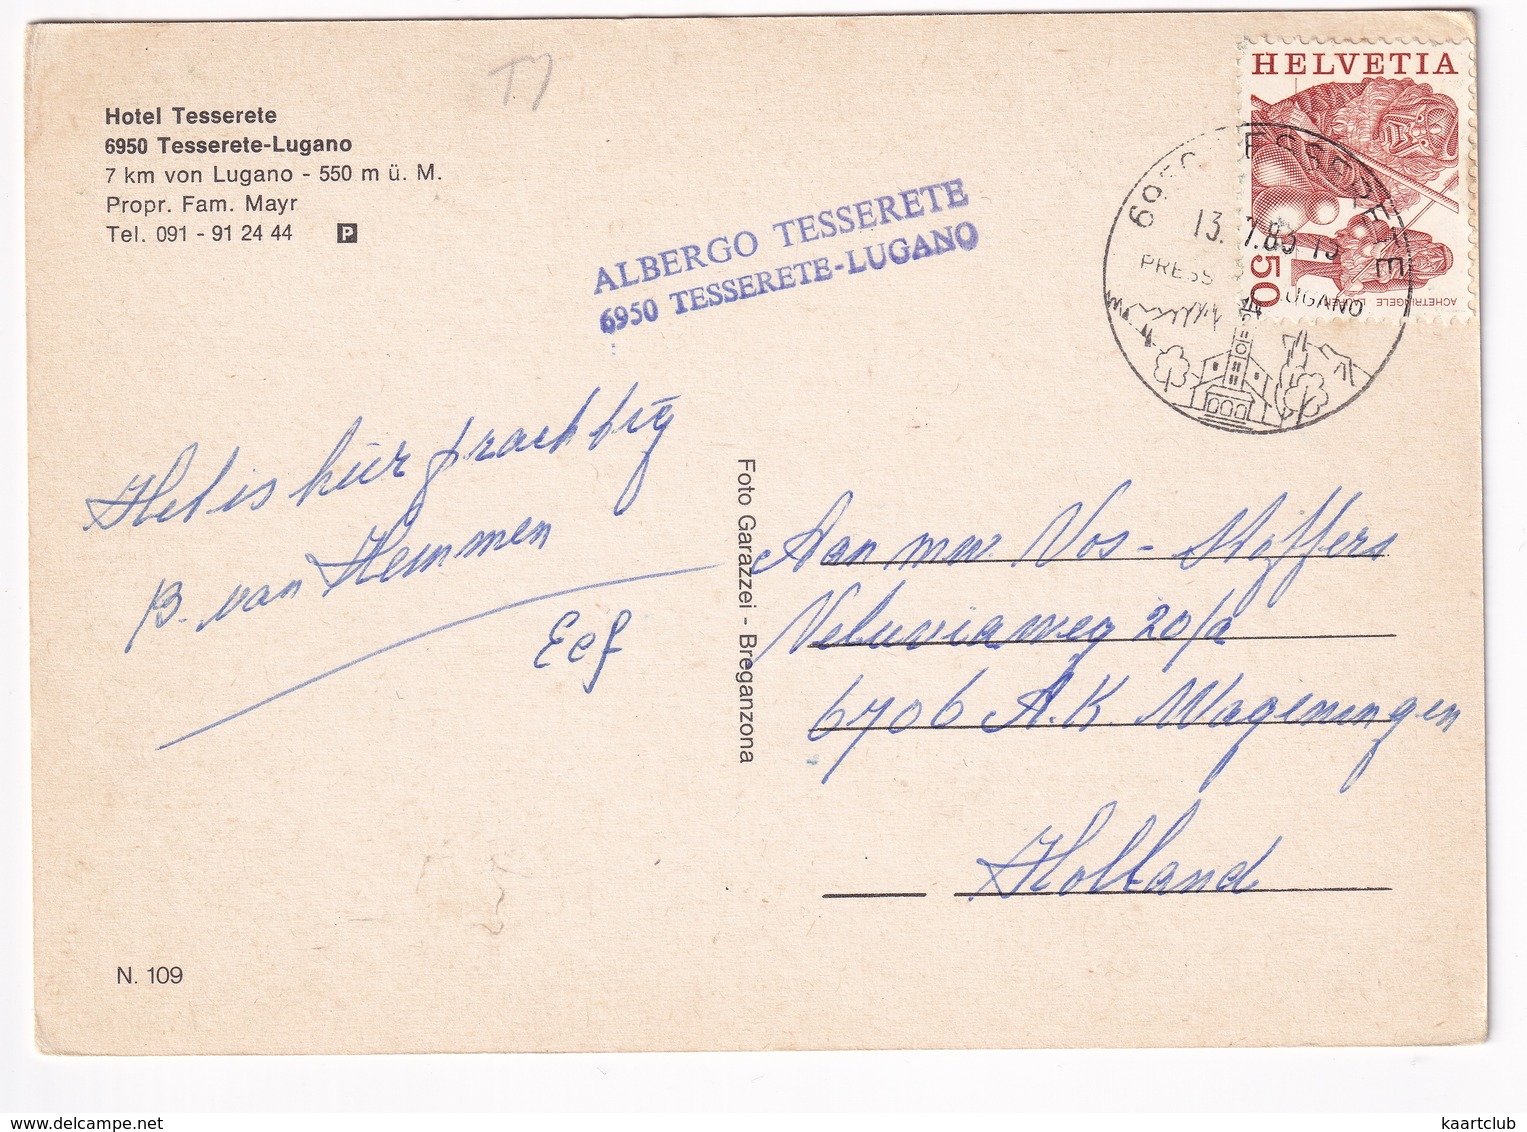 Hotel Tesserete
6950 Tesserete-Lugano
7 km von Lugano - 550 m ü. M.
Propr. Fam. Mayr
Tel. 091 - 91 24 44 P
ALBERGO TESSERETE
6950 TESSERETE-LUGANO
HELVETIA
50
ACHETRINGELE LAUPEN
6950 TESSERETE
13. 7.83-15
PRESSO LUGANO
Het is hier prachtig
B. van Hemmen
Eef
Foto Garazzei - Breganzona
Aan mw. Vos - Stoffers
Veluviaweg 20/a
6706 A.K. Wageningen
Holland
N. 109
delcampe.net
kaartclub